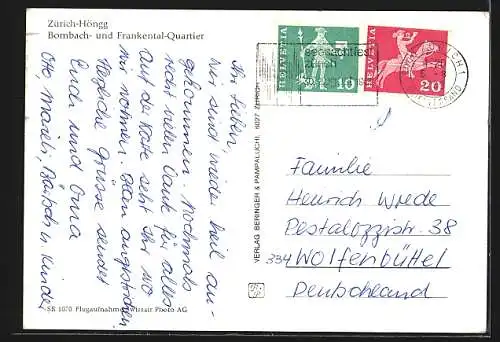 Zürich-Höngg
Bombach- und Frankental-Quartier
Ihr Lieben,
Wir sind wieder heil an-
gekommen. Nochmals
recht vielen Dank für alles
auf der Karte seht Ihr wo
wir wohnen. Blau angestrichen
Herzliche Grüsse sendet
Euch und Oma
und Kinder
SR 1070 Flugaufnahme Swissair Photo AG
VERLAG BERINGER & PAMPALUCHI, 8027 ZÜRICH
HELVETIA
10
HELVETIA
20
seenachtfest
zürich
Familie
Henrich Wrede
Pestalozzistr. 38
334 Wolfenbüttel
Deutschland